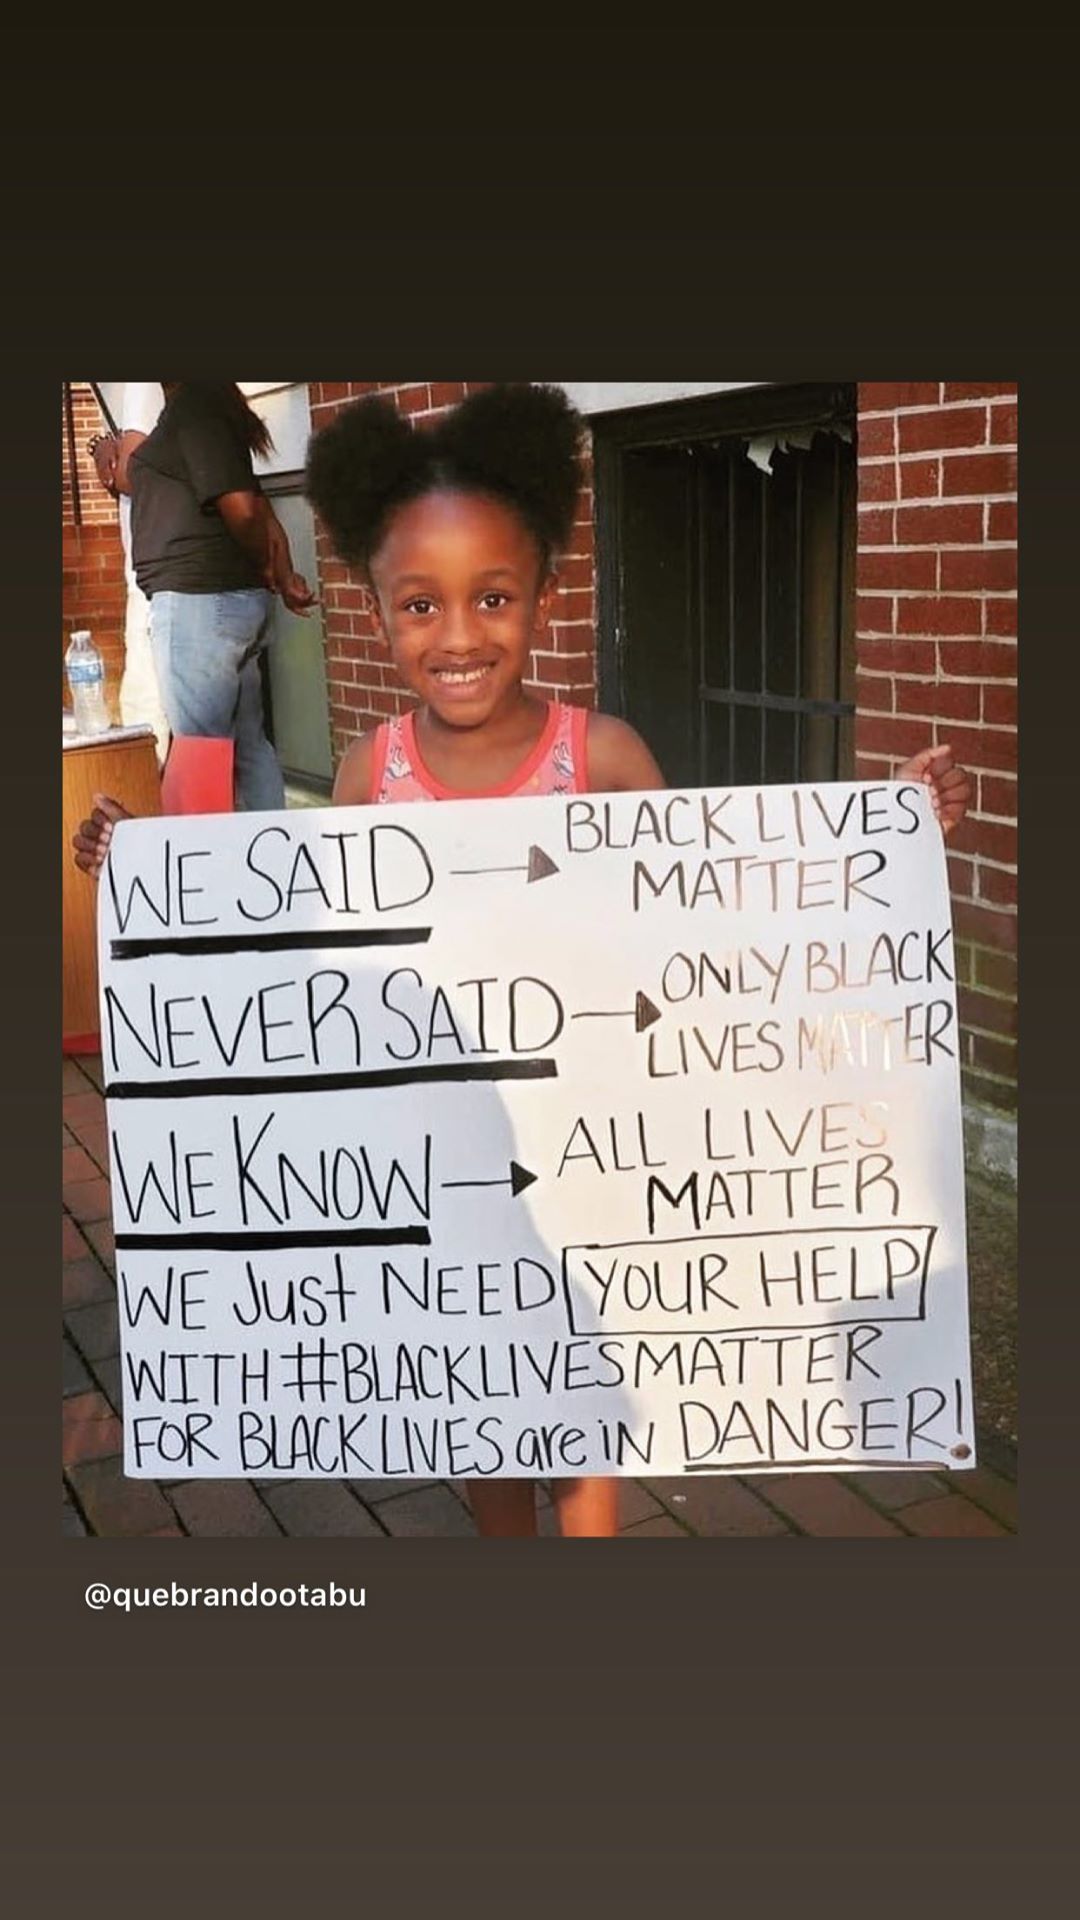 WE SAID → BLACK LIVES
MATTER
NEVER SAID → ONLY BLACK
LIVES MATTER
WE KNOW → ALL LIVES
MATTER
WE Just NEED YOUR HELP
WITH #BLACKLIVESMATTER
FOR BLACK LIVES are iN DANGER!
@quebrandootabu